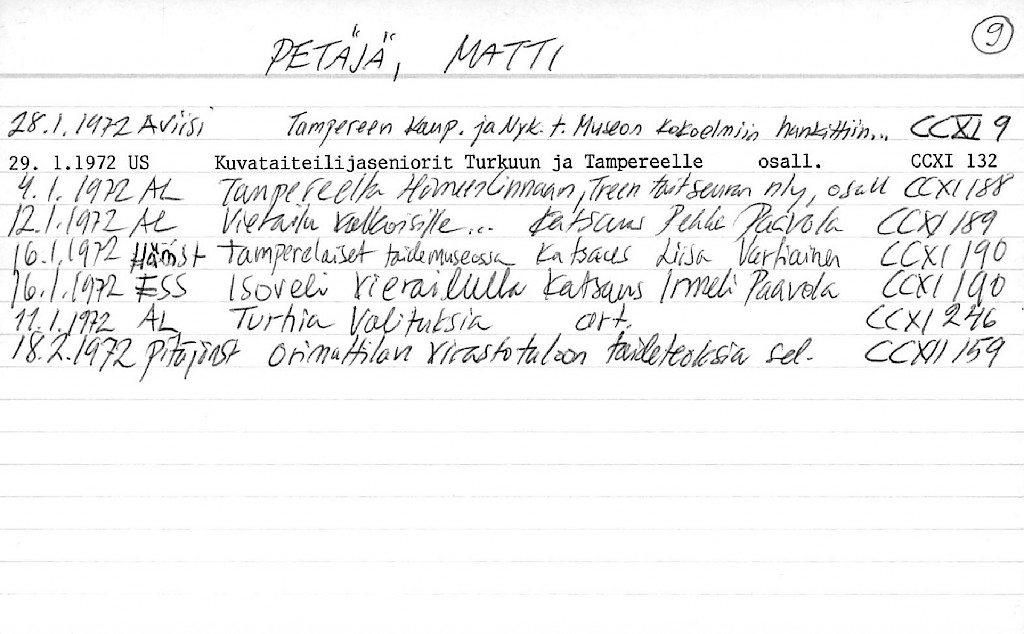 9
PETÄJÄ, MATTI
28.1.1972 Aviisi Tampereen Kaup. ja Nyk. t. Museon Kokoelmiin hankittiin... CCXI 9
29. 1.1972 US Kuvataiteilijaseniorit Turkuun ja Tampereelle osall. CCXI 132
4.1.1972 AL Tampereelta Hämeenlinnaan, Treen tait.seuran nly, osall CCXI 188
12.1.1972 AL Vierailu Valkoisille... Katsaus Pekka Paavola CCXI 189
16.1.1972 HämSt Tamperelaiset taidemuseossa Katsaus Liisa Vartiainen CCXI 190
16.1.1972 ESS Isoveli Vierailulla Katsaus Irmeli Paavola CCXI 190
11.1.1972 AL Turhia Valituksia art. CCXI 246
18.2.1972 Pitäjänst Orimattilan Virastotaloon taideteoksia sel. CCXII 159